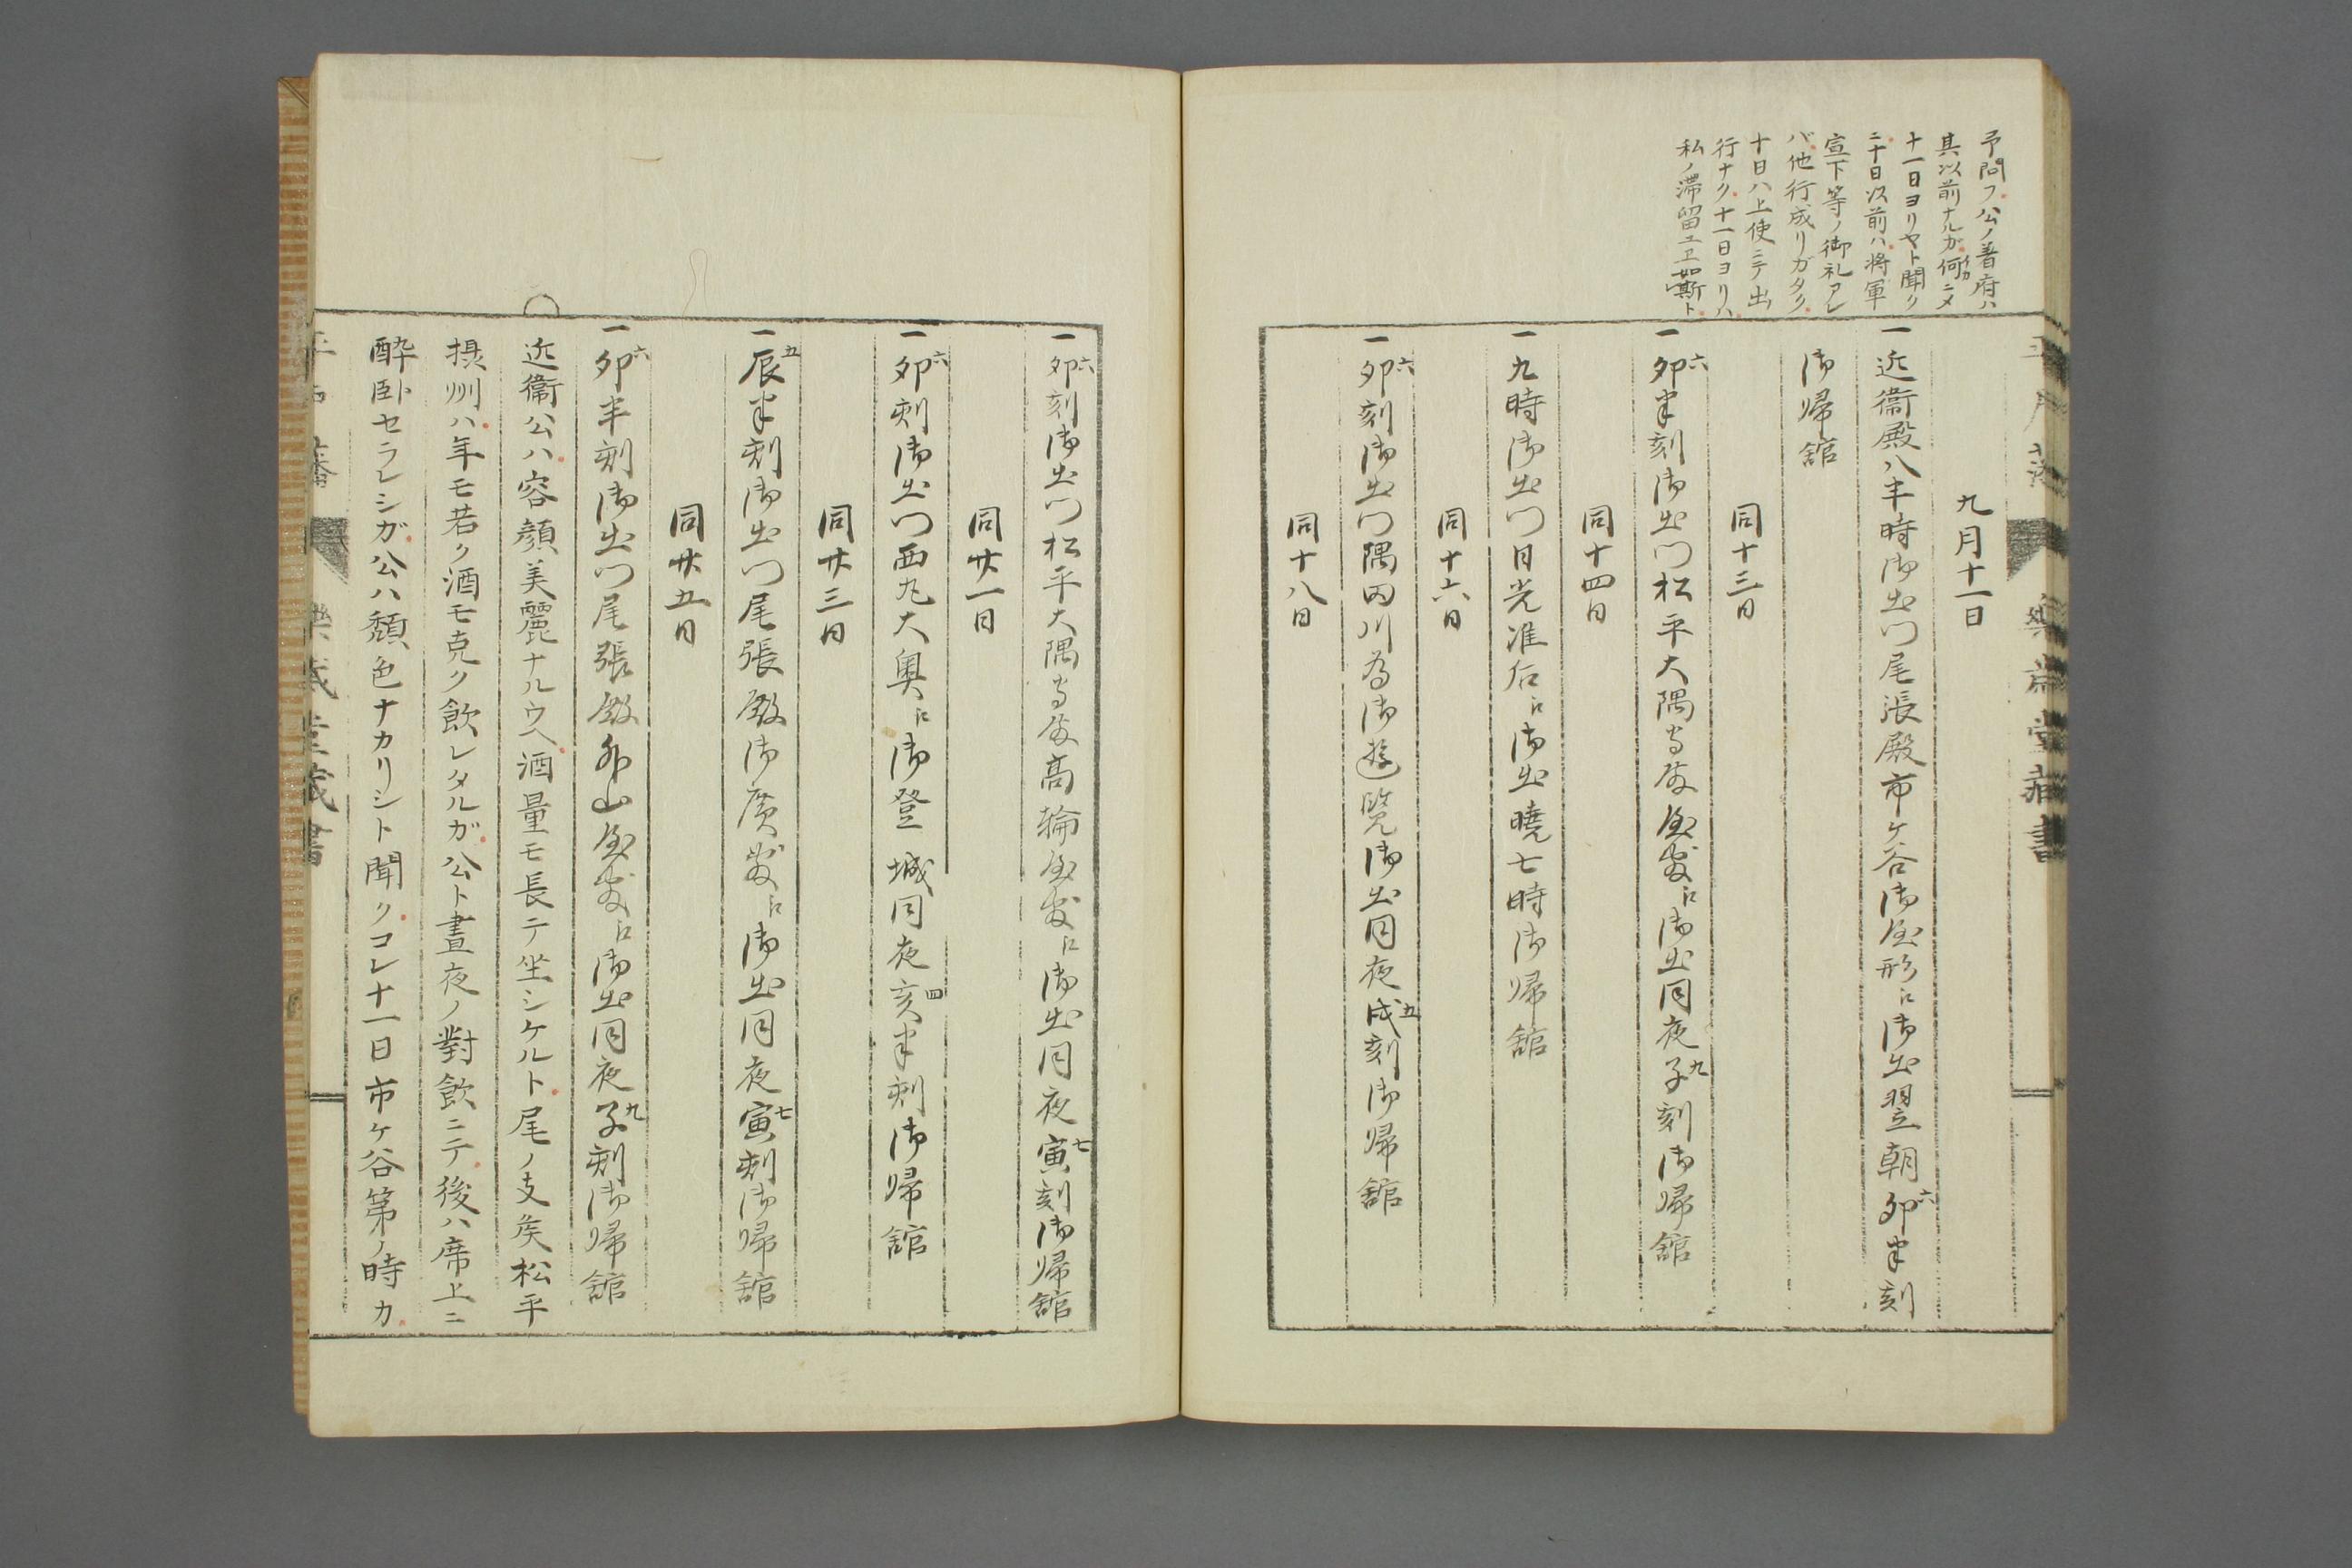 予問フ公ノ着府ハ
其以前ナルガ何ニメ
十一日ヨリヤト聞ク
二十日以前ハ将軍
宣下等ノ御礼アレ
バ他行成リガタク
十日ハ上使ニテ出
行ナク十一日ヨリハ
私ノ滞留ユヱ如斯ト
九月十一日
一近衞殿八半時御出門尾張殿市ヶ谷御屋形江御出翌朝卯六半刻
御帰舘
同十三日
一卯六半刻御出門松平大隅守殿屋敷江御出同夜子九刻御帰舘
同十四日
一九時御出門日光准后江御出曉七時御帰舘
同十六日
一卯六刻御出門隅田川為御遊覧御出同夜戌五刻御帰舘
同十八日
一卯六刻御出門松平大隅守殿高輪屋敷江御出同夜寅七刻御帰舘
同廿一日
一卯六刻御出門西丸大奥江御登城同夜亥四半刻御帰舘
同廿三日
一辰五半刻御出門尾張殿御廣敷江御出同夜寅七刻御帰舘
同廿五日
一卯六半刻御出門尾張殿外山屋敷江御出同夜子九刻御帰舘
近衞公ハ容顔美麗ナルウヘ酒量モ長テ坐シケルト尾ノ支矦松平
摂州ハ年モ若ク酒モ克ク飲レタルガ公ト晝夜ノ對飲ニテ後ハ席上ニ
酔臥セラレシガ公ハ頽色ナカリシト聞クコレ十一日市ヶ谷第ノ時カ
平戸藩
樂歳堂蔵書